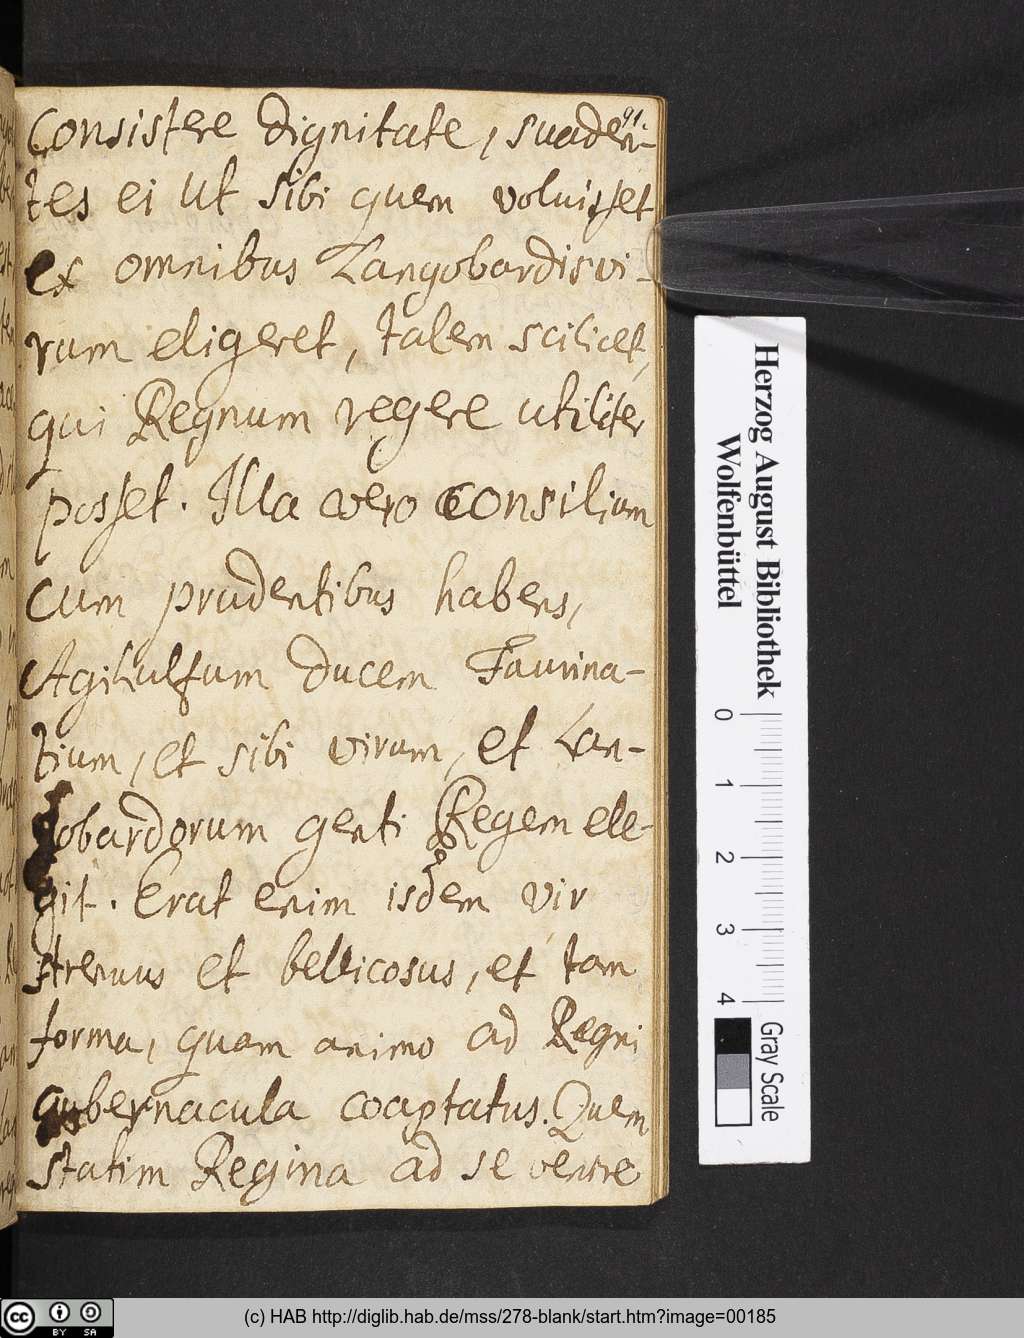 91.
Consistere dignitate, suaden-
tes ei ut sibi quem voluisset
ex omnibus Langobardis vi-
rum eligeret, talem scilicet,
qui Regnum regere utiliter
posset. Illa vero consilium
cum prudentibus habens,
Agilulfum ducem Taurina-
tium, et sibi virum, et Lan-
gobardorum genti Regem ele-
git. Erat enim isdem vir
strenuus et bellicosus, et tam
forma, quam animo ad Regni
gubernacula coaptatus. Quem
statim Regina ad se venire
Herzog August Bibliothek
Wolfenbüttel
0 1 2 3 4
Gray Scale
cc BY SA
(c) HAB http://diglib.hab.de/mss/278-blank/start.htm?image=00185